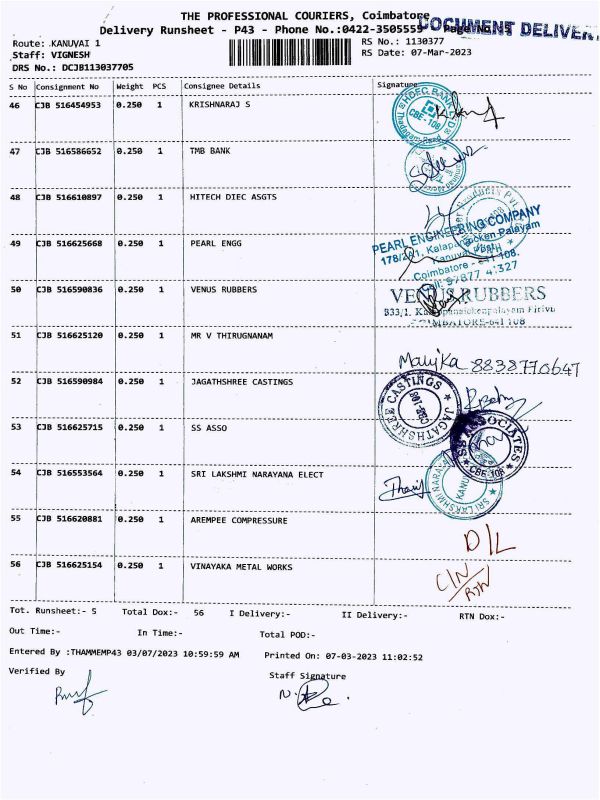 THE PROFESSIONAL COURIERS, Coimbatore
DOCUMENT DELIVERY
Delivery Runsheet - P43 - Phone No.:0422-3505555 Page No.: 5
Route: KANUVAI 1
RS No.: 1130377
Staff: VIGNESH
RS Date: 07-Mar-2023
DRS No.: DCJB113037705
S No Consignment No Weight PCS Consignee Details Signature
46 CJB 516454953 0.250 1 KRISHNARAJ S
HDFC BANK
CBE-108
47 CJB 516586652 0.250 1 TMB BANK
48 CJB 516610897 0.250 1 HITECH DIEC ASGTS
49 CJB 516625668 0.250 1 PEARL ENGG
PEARL ENGINEERING COMPANY
Kanuvai
Coimbatore - 641 108.
50 CJB 516590836 0.250 1 VENUS RUBBERS
VENUS RUBBERS
COIMBATORE-641 108
51 CJB 516625120 0.250 1 MR V THIRUGNANAM
Malika 8838770647
52 CJB 516590984 0.250 1 JAGATHSHREE CASTINGS
JAGATHSHREE CASTINGS
CBE-108
53 CJB 516625715 0.250 1 SS ASSO
SS ASSOCIATES
CBE-108
54 CJB 516553564 0.250 1 SRI LAKSHMI NARAYANA ELECT
SRI LAKSHMI NARAYANA
55 CJB 516620881 0.250 1 AREMPEE COMPRESSURE
D/L
56 CJB 516625154 0.250 1 VINAYAKA METAL WORKS
C/N
RTN
Tot. Runsheet:- 5 Total Dox:- 56 I Delivery:- II Delivery:- RTN Dox:-
Out Time:- In Time:- Total POD:-
Entered By :THAMMEMP43 03/07/2023 10:59:59 AM Printed On: 07-03-2023 11:02:52
Verified By Staff Signature